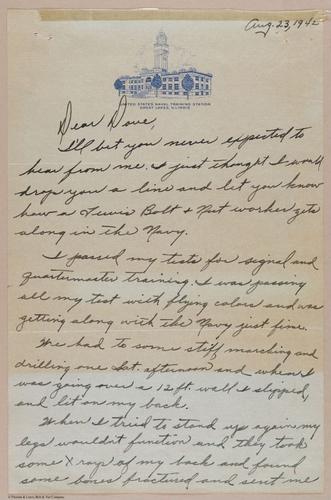 Aug. 23, 1942
UNITED STATES NAVAL TRAINING STATION
GREAT LAKES, ILLINOIS
Dear Dove,
I'll bet you never expected to
hear from me. I just thought I would
drop you a line and let you know
how a Lewis Bolt & Nut worker gets
along in the Navy.
I passed my tests for signal and
quartermaster training. I was passing
all my test with flying colors and was
getting along with the Navy just fine.
We had to some stiff marching and
drilling one Sat. afternoon and when I
was going over a 12 ft. wall I slipped,
and lit on my back.
When I tried to stand up again my
legs wouldn't function and they took
some X rays of my back and found
some bones fractured and sent me